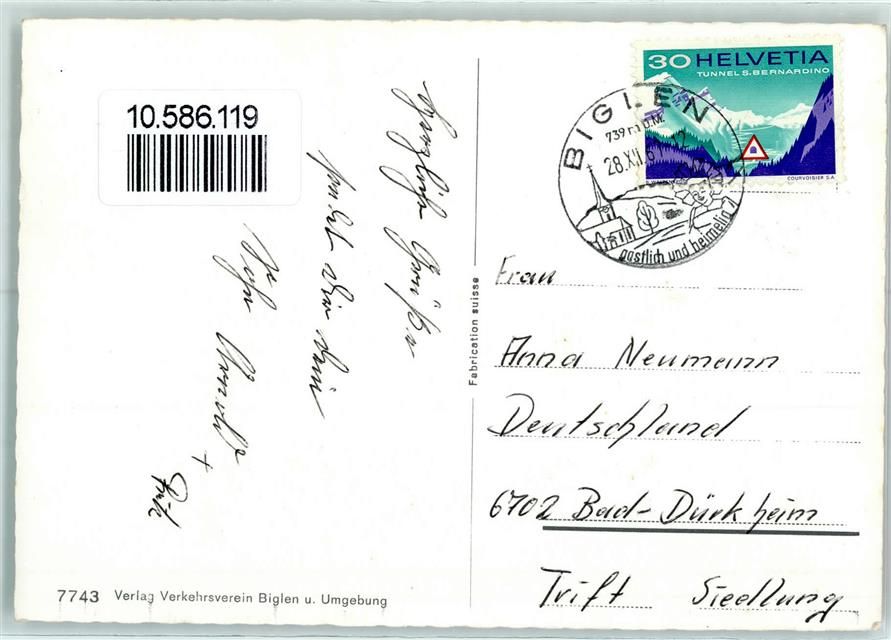 10.586.119
30 HELVETIA
TUNNEL S. BERNARDINO
COURVOISIER S.A.
BIGLEN
739 m ü.M.
28.XII.6
gastlich und heimelig
Herzliche Grüße
Fabrication suisse
Frau
Anna Neumann
Deutschland
6702 Bad-Dürkheim
Trift Siedlung
7743 Verlag Verkehrsverein Biglen u. Umgebung